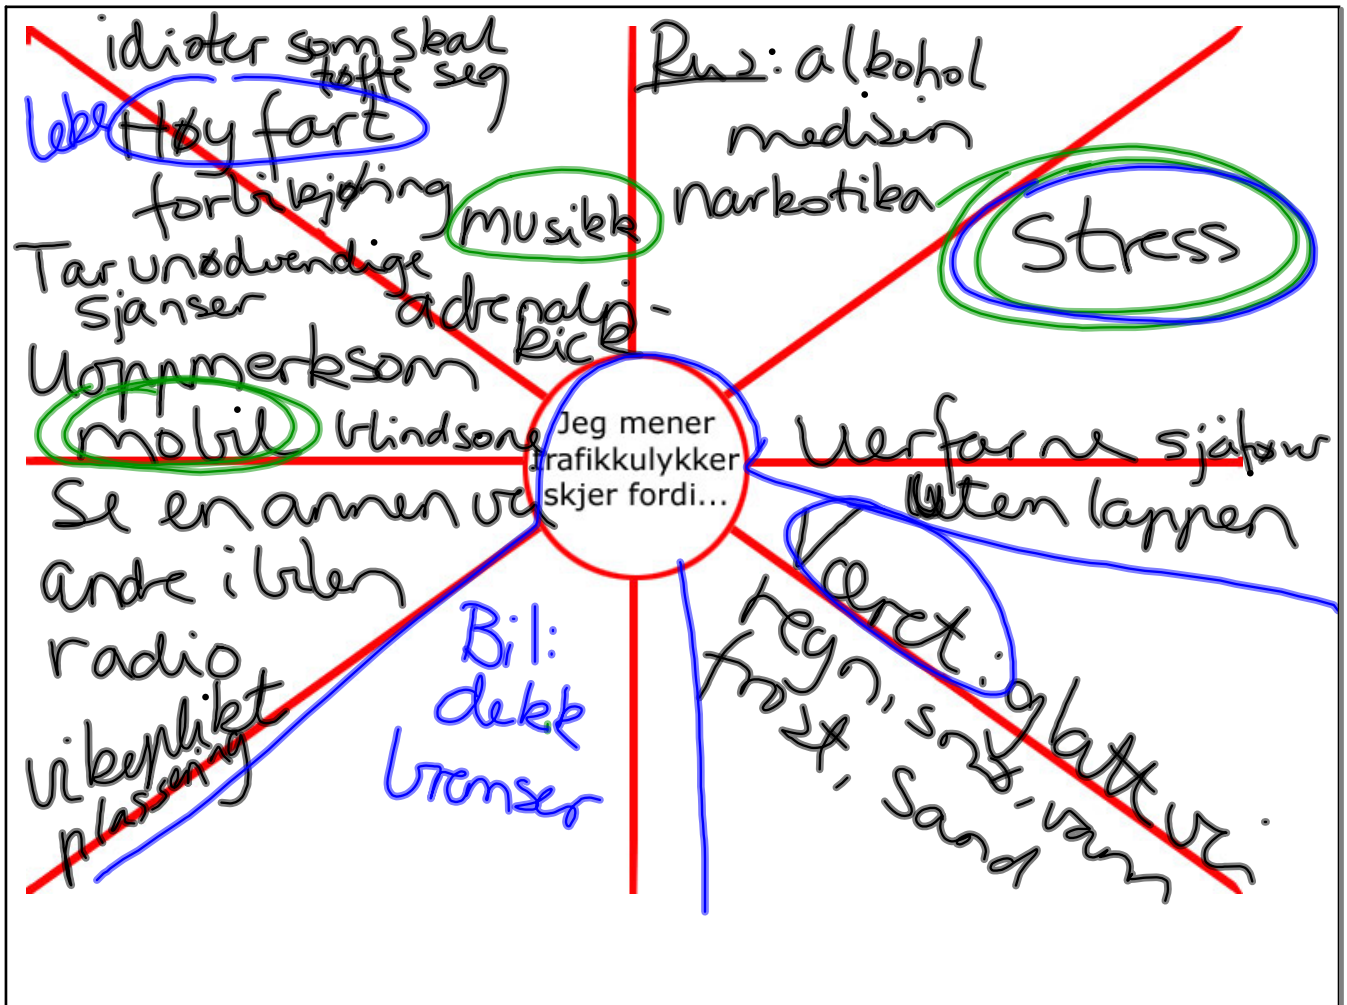 idioter som skal
tøffe seg
Høy fart
forbikjøring
musikk
Tar unødvendige
sjanser
adrenalin-
kick
Uoppmerksom
mobil blindsone
Se en annen vei
andre i bilen
radio
vikeplikt
plassering
Rus: alkohol
medisin
narkotika
Stress
Jeg mener
trafikkulykker
skjer fordi...
Uerfarne sjåfører
uten lappen
Været: glatt vei
regn, snø, vann
frost, sand
Bil:
dekk
bremser